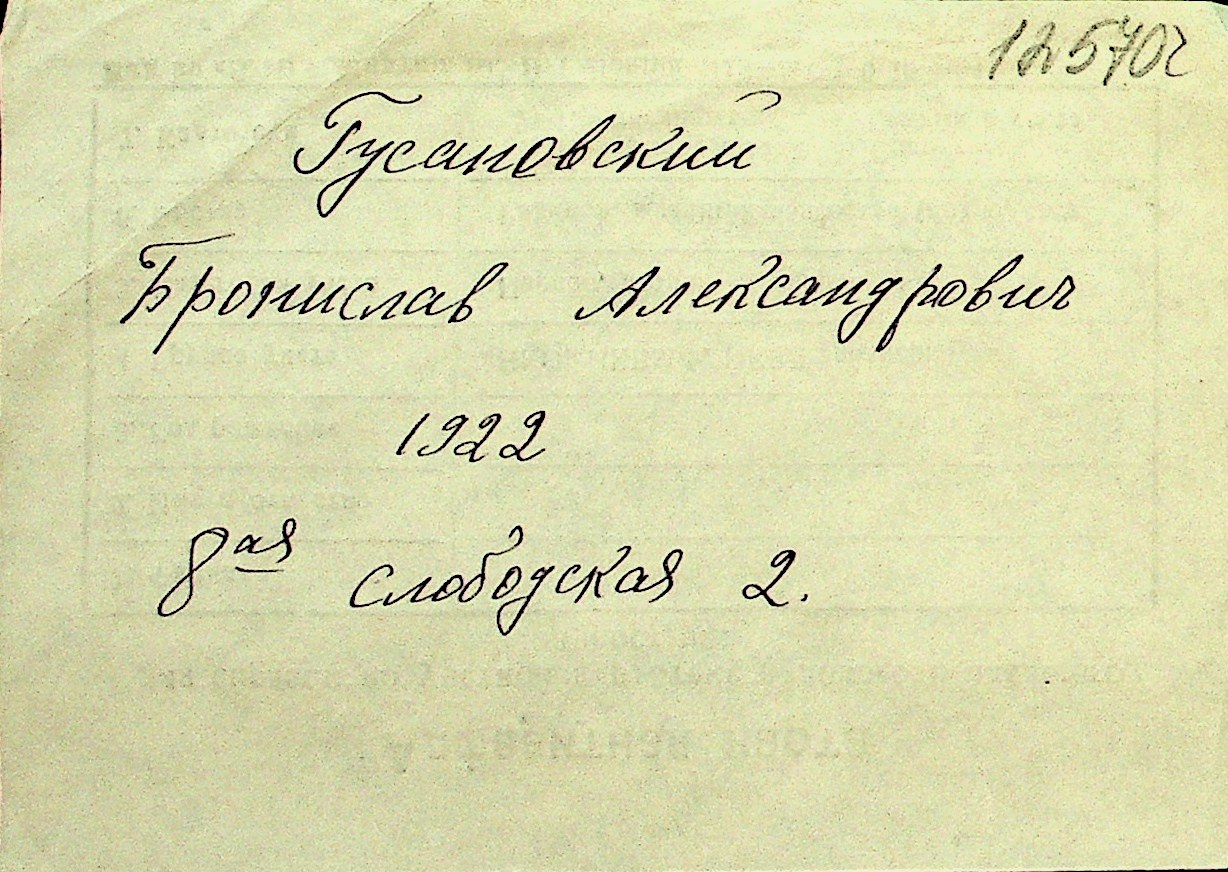 12570г
Гусановский
Бронислав Александрович
1922
8ая Слободская 2.